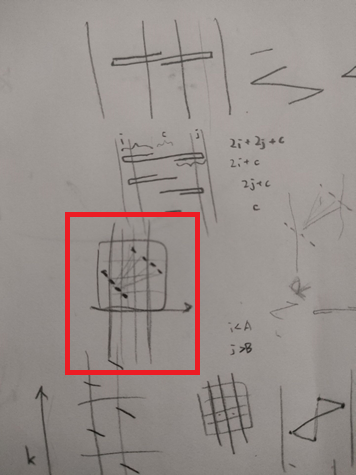 i c j
2i+2j+c
2i+c
2j+c
c
i<A
j>B
k